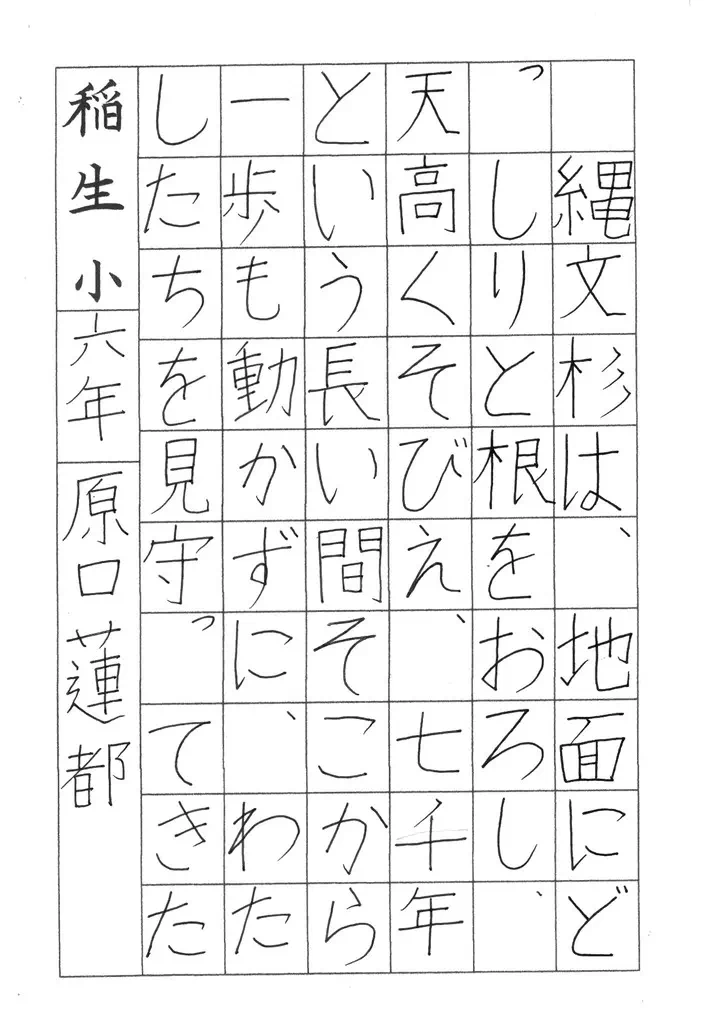 縄文杉は、地面にど
っしりと根をおろし、
天高くそびえ、七千年
という長い間そこから
一歩も動かずに、わた
したちを見守ってきた
稲生小六年原口蓮都